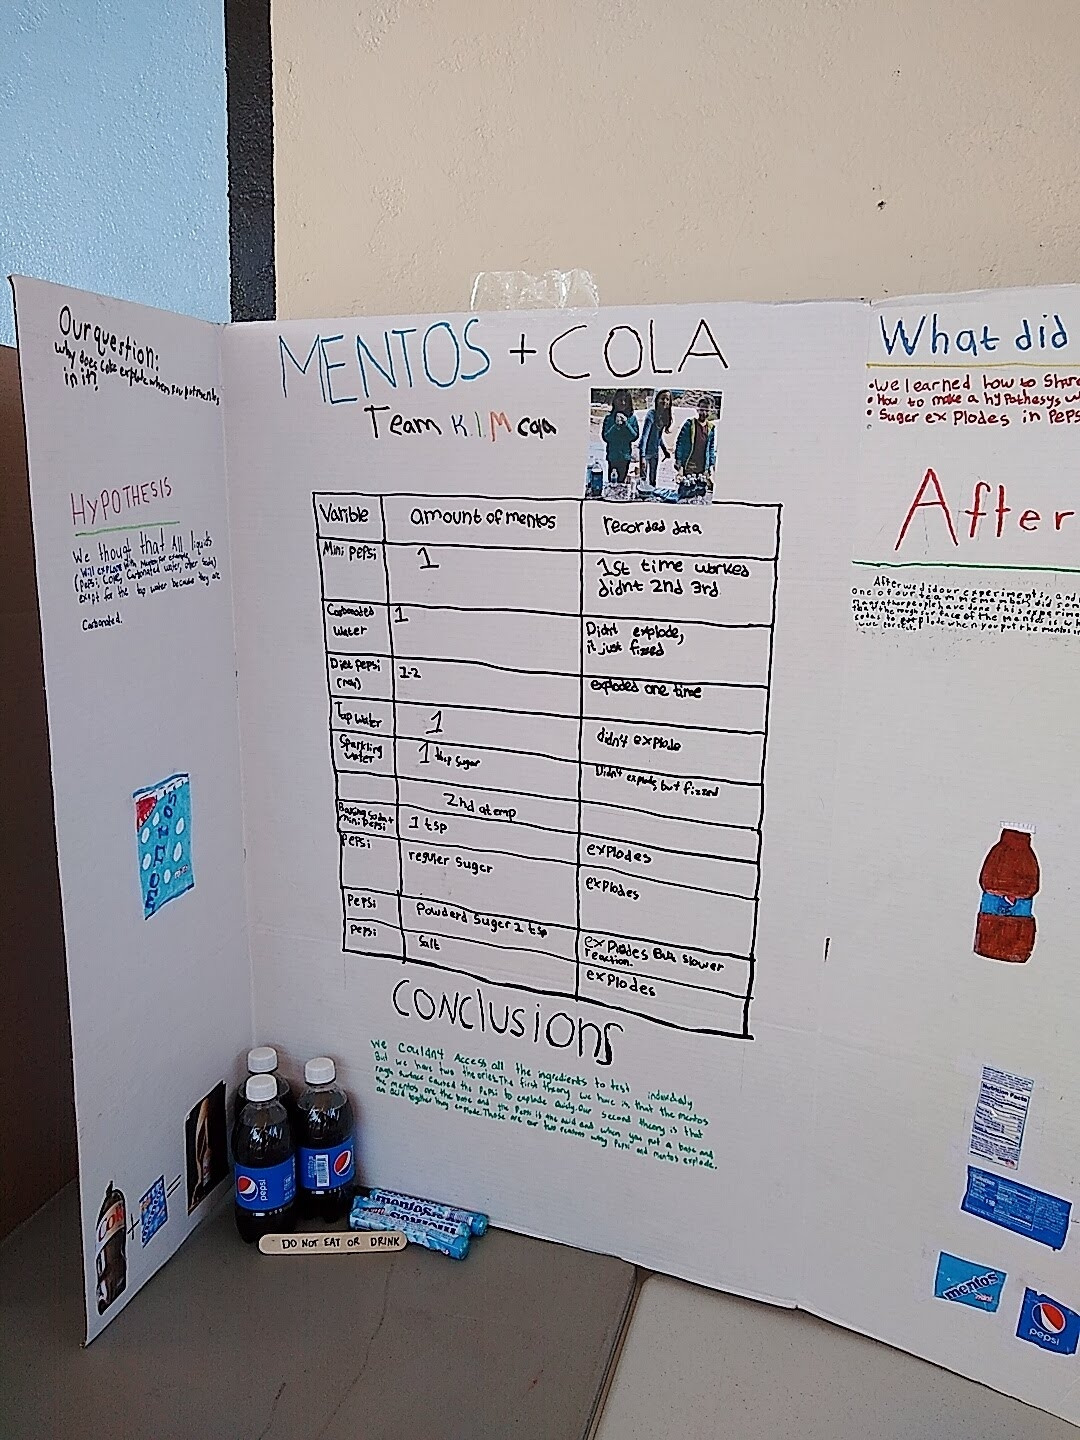 Our question:
why does Coke explode when you put mentos
in it?
HYPOTHESIS
We though that All liquids
will explode with
(Pepsi, Coke, Carbonated water, other
exept for the tap water because they are
Carbonated.
MENTOS + COLA
Team K.I.M cola
Varible amount of mentos recorded data
Mini pepsi 1 1st time worked
didnt 2nd 3rd
Carbonated
Water 1 Didn't explode,
it just fizzed
Diet pepsi 1-2 exploded one time
Tap water 1 didn't explode
Sparkling
water 1 tbsp sugar Didn't explode but fizzed
2nd atemp
Baking soda +
mini pepsi 1 tsp explodes
Pepsi reguler Suger explodes
Pepsi Powderd Suger 2 tsp explodes But slower
reaction.
Pepsi Salt explodes
CONCLUSIONS
We Couldn't Access all the ingredients to test indvidualy
But we have two theories. The first theory we have is that the mentos
rough surface caused the Pepsi to explode. Our second theory is that
the mentos are the base and the Pepsi is the acid and when you put a base and
an acid together they explode. Those are our two reasons why Pepsi and mentos explode.
What did
• We learned how to Share
• How to make a hypothesys
• Suger explodes in Peps
After
After we did our experiments, and
one of our team memamers did som
many other people have done this experime
that the rough surface of the mentos is wh
colas to explode when you put the mentos in
pepsi
mentos
mentos
DO NOT EAT OR DRINK
Nutrition Facts
mentos
mint
pepsi